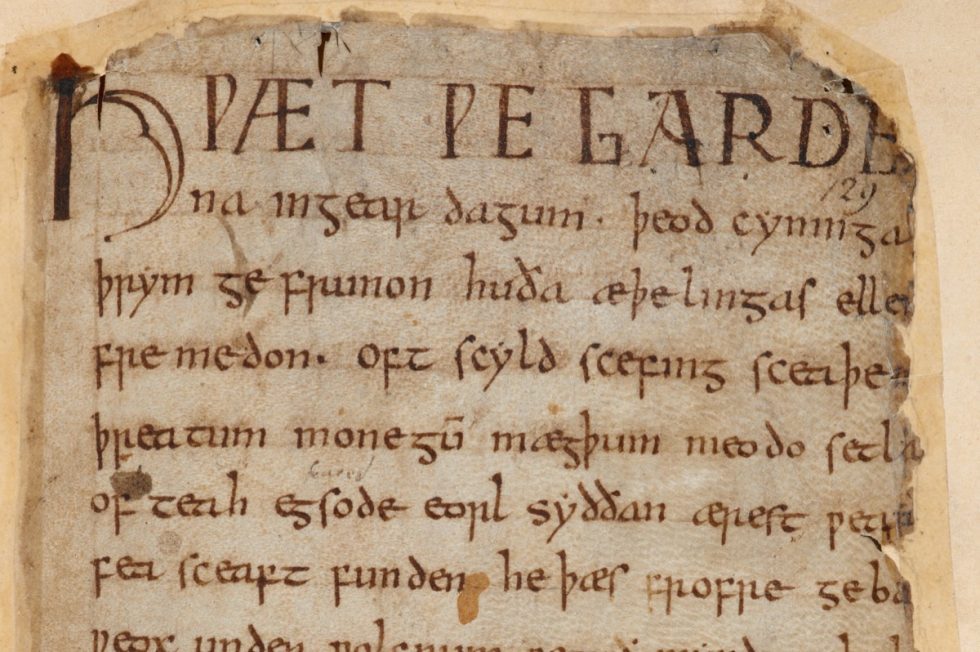 HǷÆT ǷE GARDE
129
na ingear dagum. þeod cyninga
þrym ge frunon huða æþelingas ellen
fre medon. oft scyld scefing sceaþe
þreatum monegū mægþum meodo setla
of teah egsode eorl syððan ærest ƿear
fea sceaft funden he þæs frofre geba
ƿeox under ƿolcnum